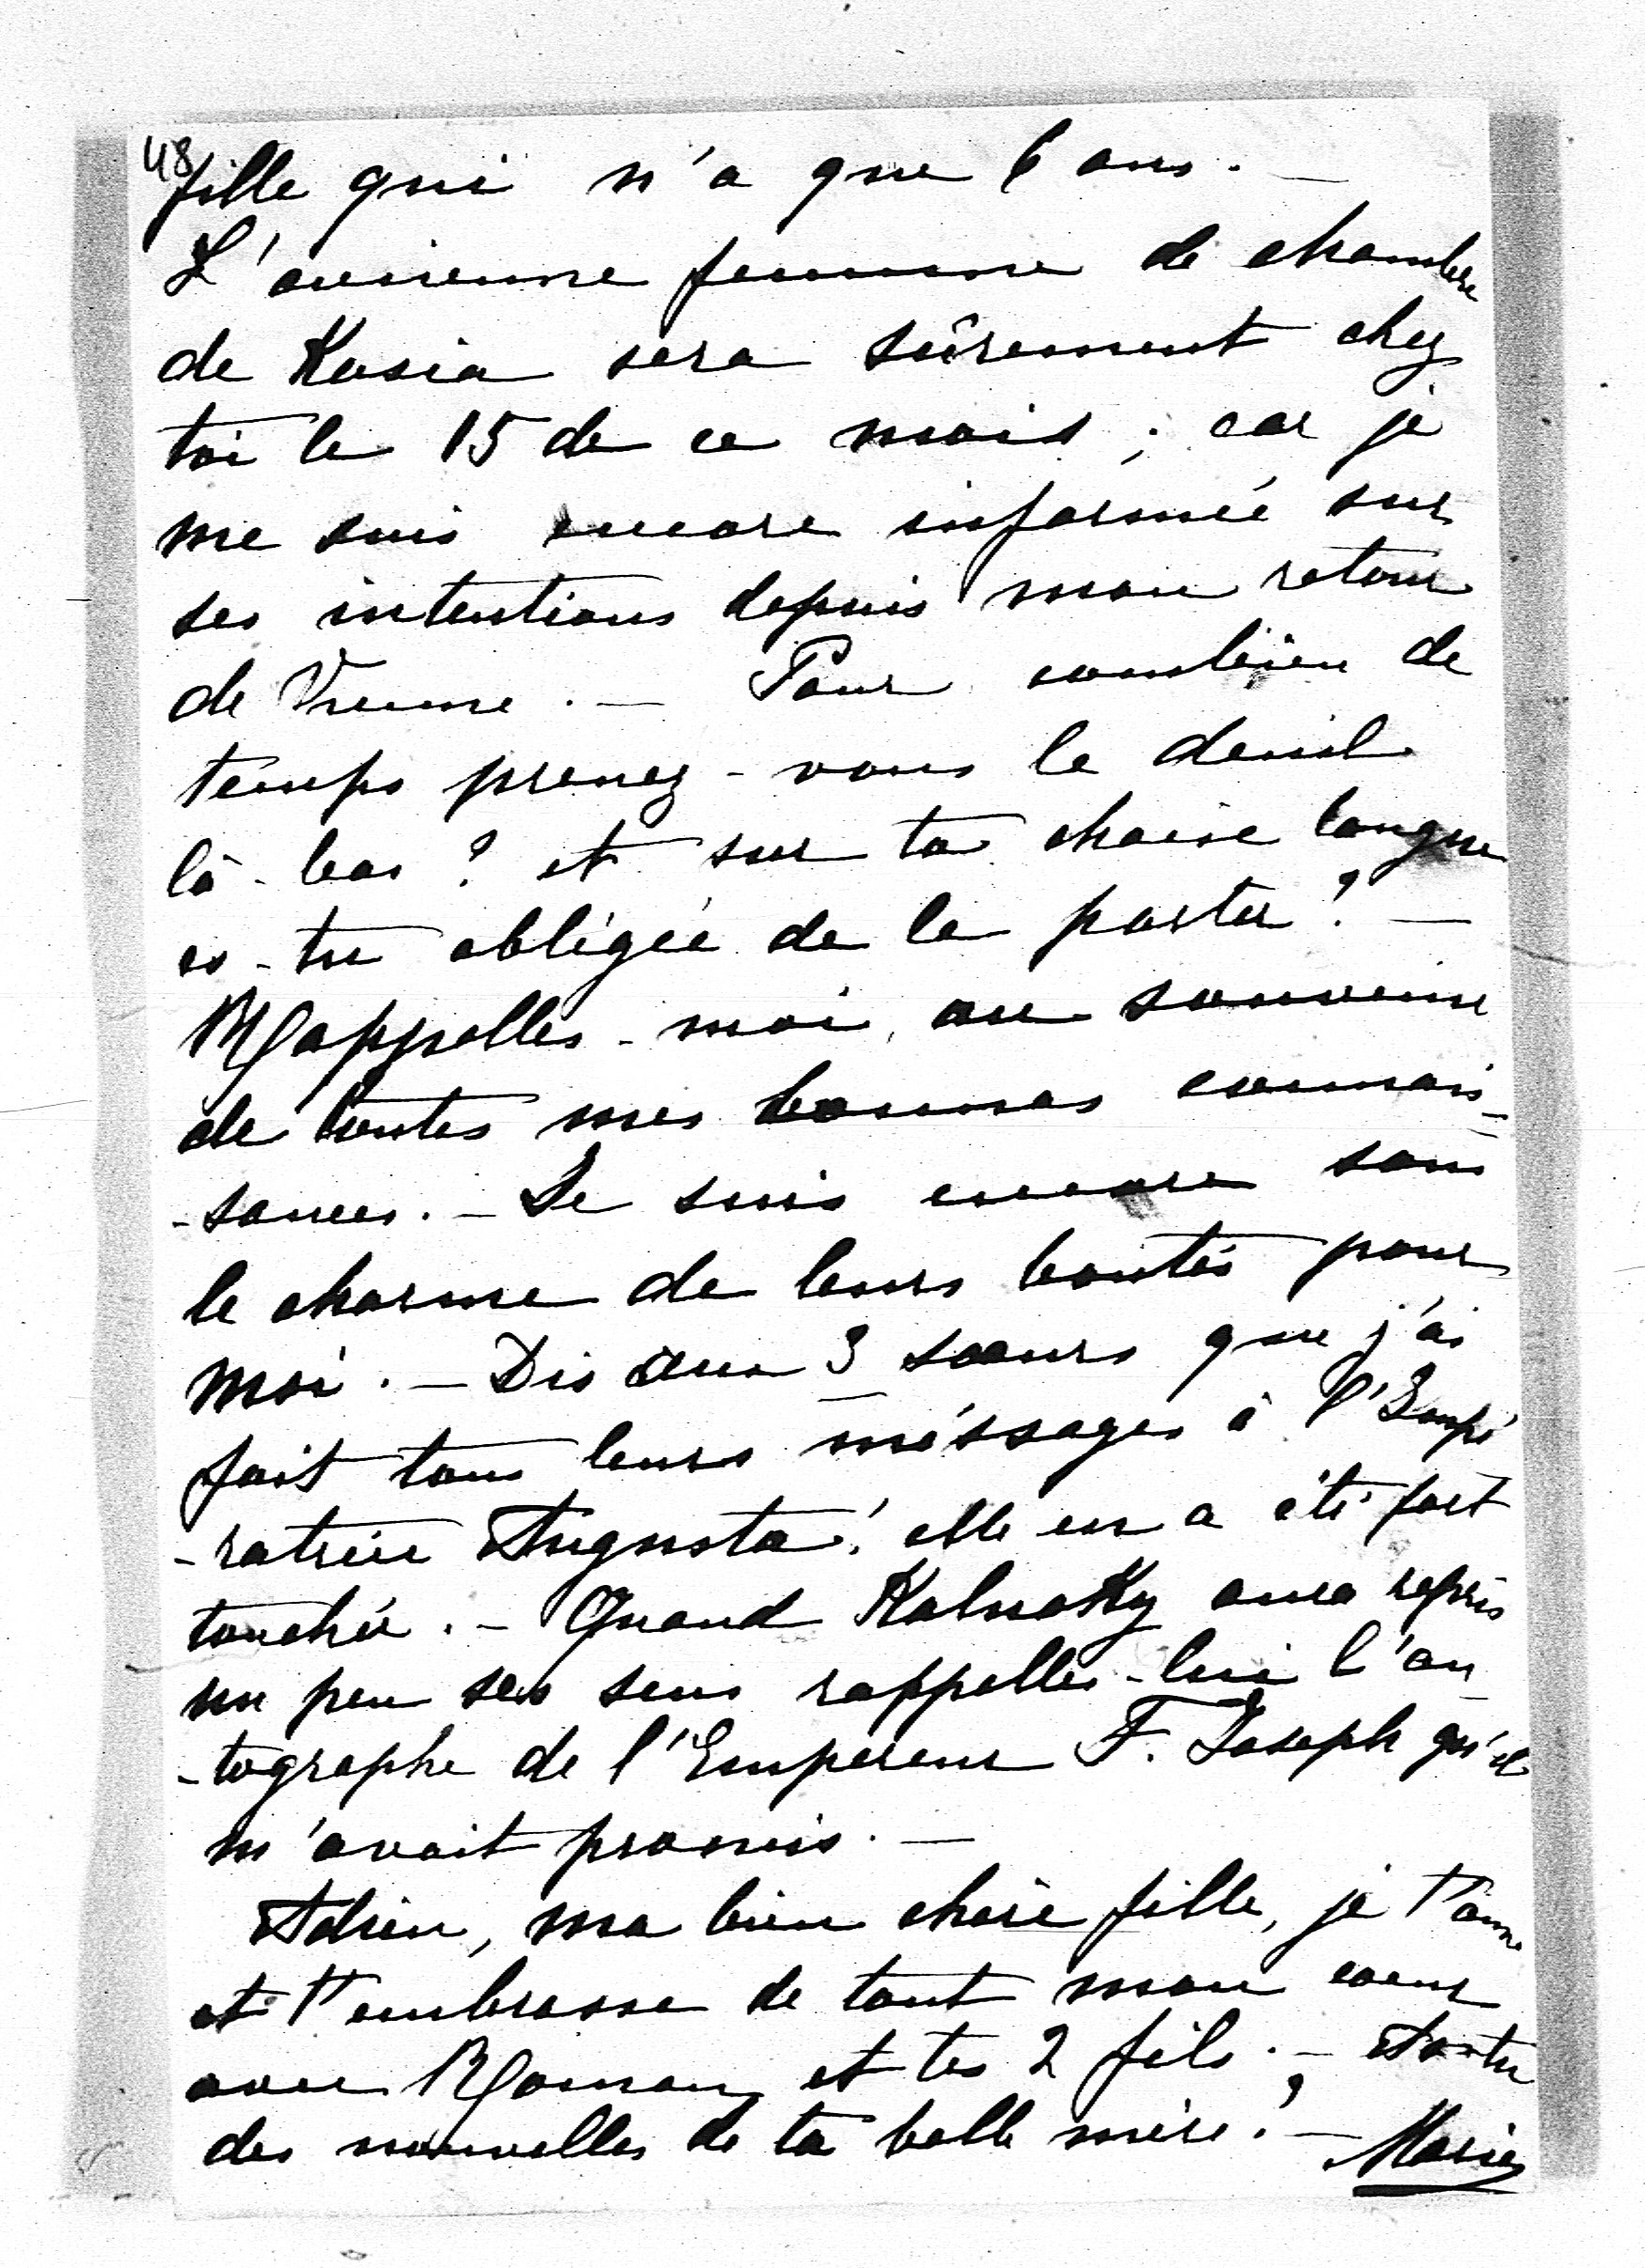 48
fille qui n'a que 6 ans. —
L'ancienne femme de chambre
de Kasia sera sûrement chez
toi le 15 de ce mois ; car je
me suis encore informée sur
ses intentions depuis mon retour
de Vienne. — Pour combien de
temps prenez-vous le deuil
là-bas ? et sur ta chaise longue
es-tu obligée de le porter ? —
Rappelles-moi, au souvenir
de toutes mes bonnes connais-
-sances. — Je suis encore sous
le charme de leurs bontés pour
moi. — Dis aux 3 sœurs que j'ai
fait tous leurs méssages à l'Impé
-ratrice Augusta ! elle en a été fort
touchée. — Quand Kalnoky aura repris
un peu ses sens rappelles-lui l'au-
-tographe de l'Empereur F. Joseph qu'il
m'avait promis. —
Adieu, ma bien chère fille, je t'aime
et t'embrasse de tout mon cœur
avec Roman et tes 2 fils. — As-tu
des nouvelles de ta belle mère ? — Marie